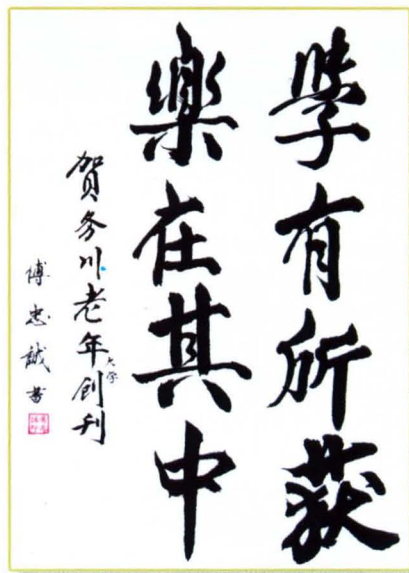 學有所获
樂在其中
賀务川老年大学創刊
傅忠誠書